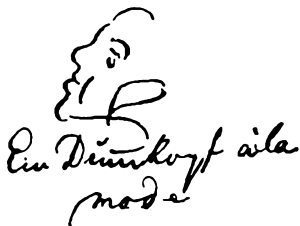 Ein Dummkopf àla
mode